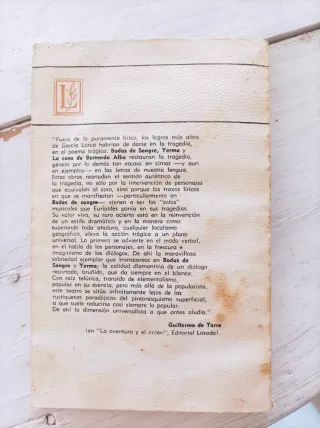 "Fuera de lo puramente lírico, los logros más altos
de García Lorca habrían de darse en la tragedia,
en el poema trágico. Bodas de Sangre, Yerma y
La casa de Bernarda Alba restauran la tragedia,
género por lo demás tan escaso en cimas —y aun
en ejemplos— en las letras de nuestra lengua.
Estas obras reanudan el sentido auténtico de
la tragedia, no sólo por la intervención de personajes
que equivalen al coro, sino porque los trozos líricos
en que se manifiestan —particularmente en
Bodas de sangre— vienen a ser los "solos"
musicales que Eurípides ponía en sus tragedias.
Su valor vivo, su raro acierto está en la reinvención
de un estilo dramático y en la manera como
superando toda atadura, cualquier localismo
geográfico, eleva la acción trágica a un plano
universal. Lo primero se advierte en el modo verbal,
en el habla de los personajes, en la frescura e
imaginismo de los diálogos. De ahí la maravillosa
sobriedad ejemplar que transparece en Bodas de
Sangre y Yerma; la calidad diamantina de un diálogo
recortado, bruñido, que da siempre en el blanco.
Con raíz telúrica, transido de elementalismo,
popular en su esencia, pero más allá de lo popularista,
este teatro se sitúa infinitamente lejos de las
rustiqueces paradójicas del pintoresquismo superficial,
a que suele reducirse casi siempre lo popular.
De ahí la dimensión universalista a que antes aludía."
Guillermo de Torre
(en "La aventura y el orden", Editorial Losada).